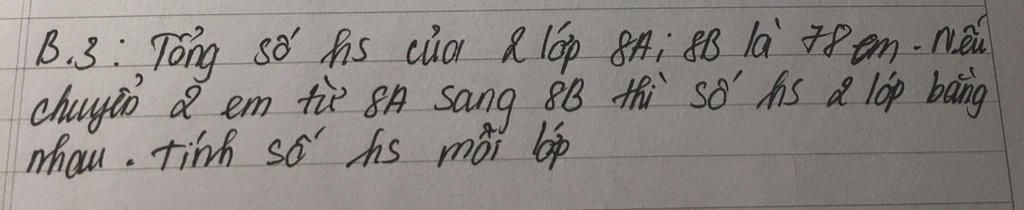 B.3: Tổng số hs của 2 lớp 8A; 8B là 78 em. Nếu
chuyển 2 em từ 8A sang 8B thì số hs 2 lớp bằng
nhau. Tính số hs mỗi lớp